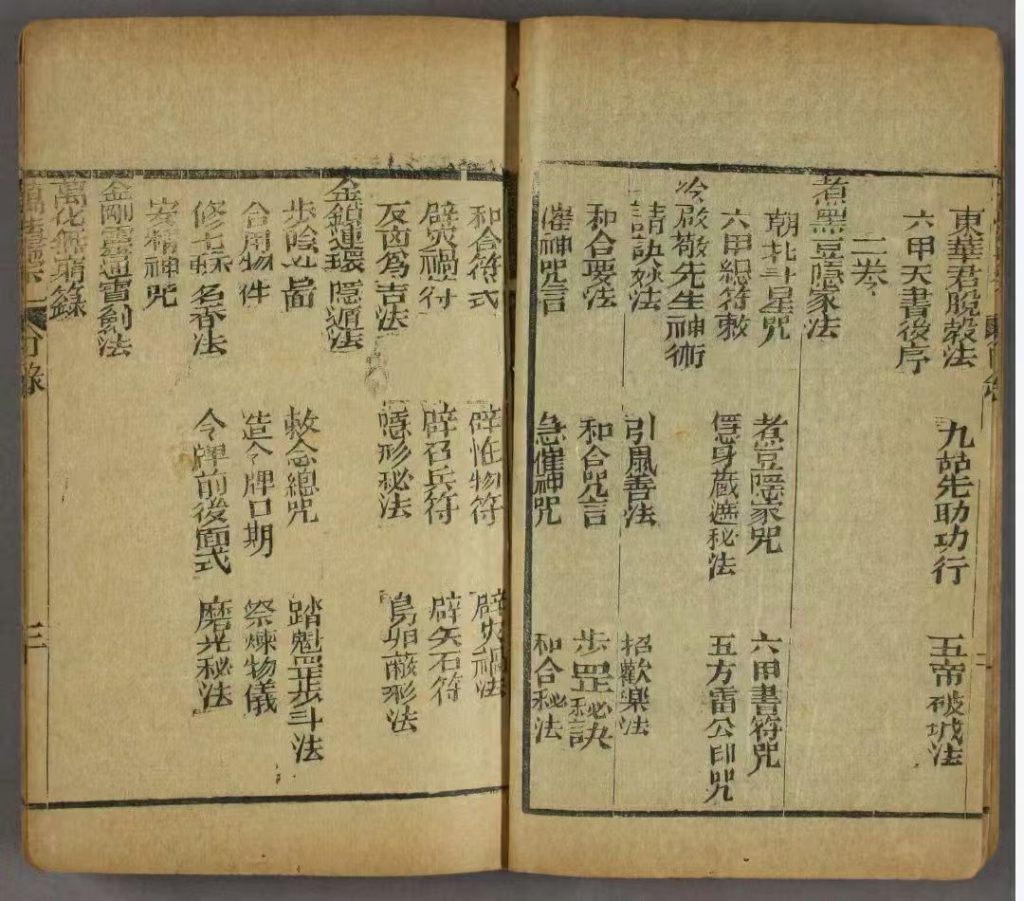 東華君脫殼法 九姑先助功行 五帝破城法
六甲天書後序
二卷
煮黑豆隱家法
朝北斗星咒 煮豆隱家咒 六甲書符咒
六甲總符敕 隱身藏遮秘法 五方雷公印咒
冷啟敬先生神術
請訣妙法 引鳳善法 招歡樂法
和合要法 和合咒言 步罡秘訣
催神咒言 急催神咒 和合秘法
和合符式 辟怪物符 辟火禍法
辟災禍符 辟召兵符 辟矢石符
反凶為吉法 隱形秘法 鳥卵蔽形法
金鎖連環隱遁法
步陰 敕念總咒 踏魁罡步斗法
合用物件 造令牌日期 祭煉物儀
修 名香法 令牌前後面式 磨光秘法
安精神咒
金剛靈通寶劍法
萬化 錄
萬法歸宗 目錄 三